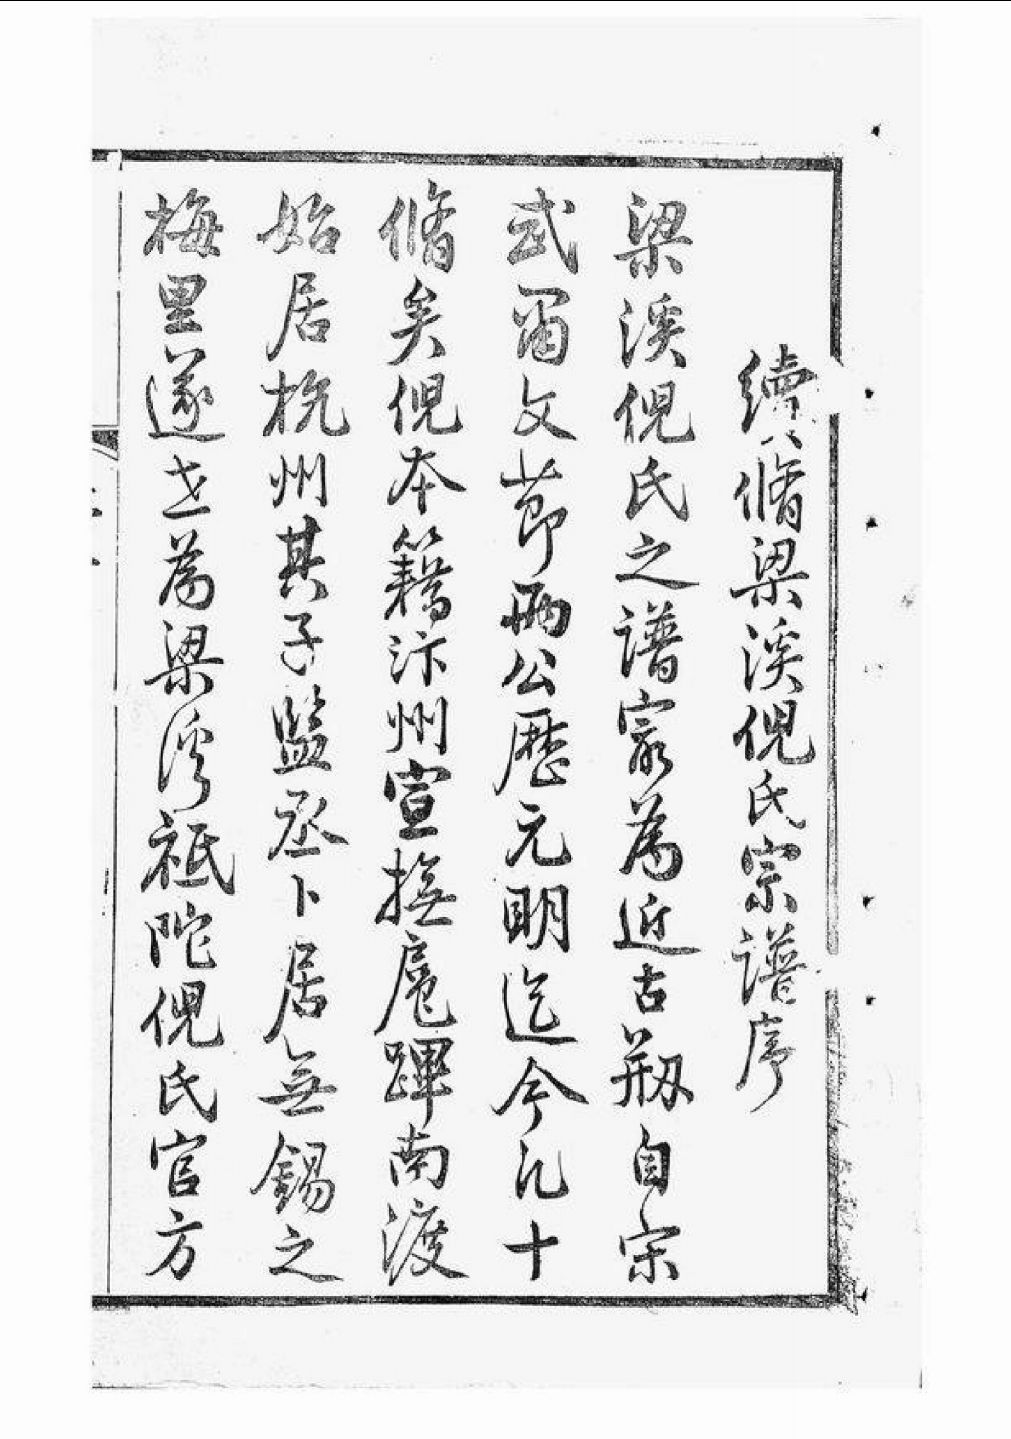 續脩梁溪倪氏宗譜序
梁溪倪氏之譜寂為近古剏自宗
武甯文莭兩公歷元明迄今凡十
脩矣倪本籍汴州宣撫扈蹕南渡
始居杭州其子監丞卜居無錫之
梅里遂世為梁溪祗陀倪氏官方